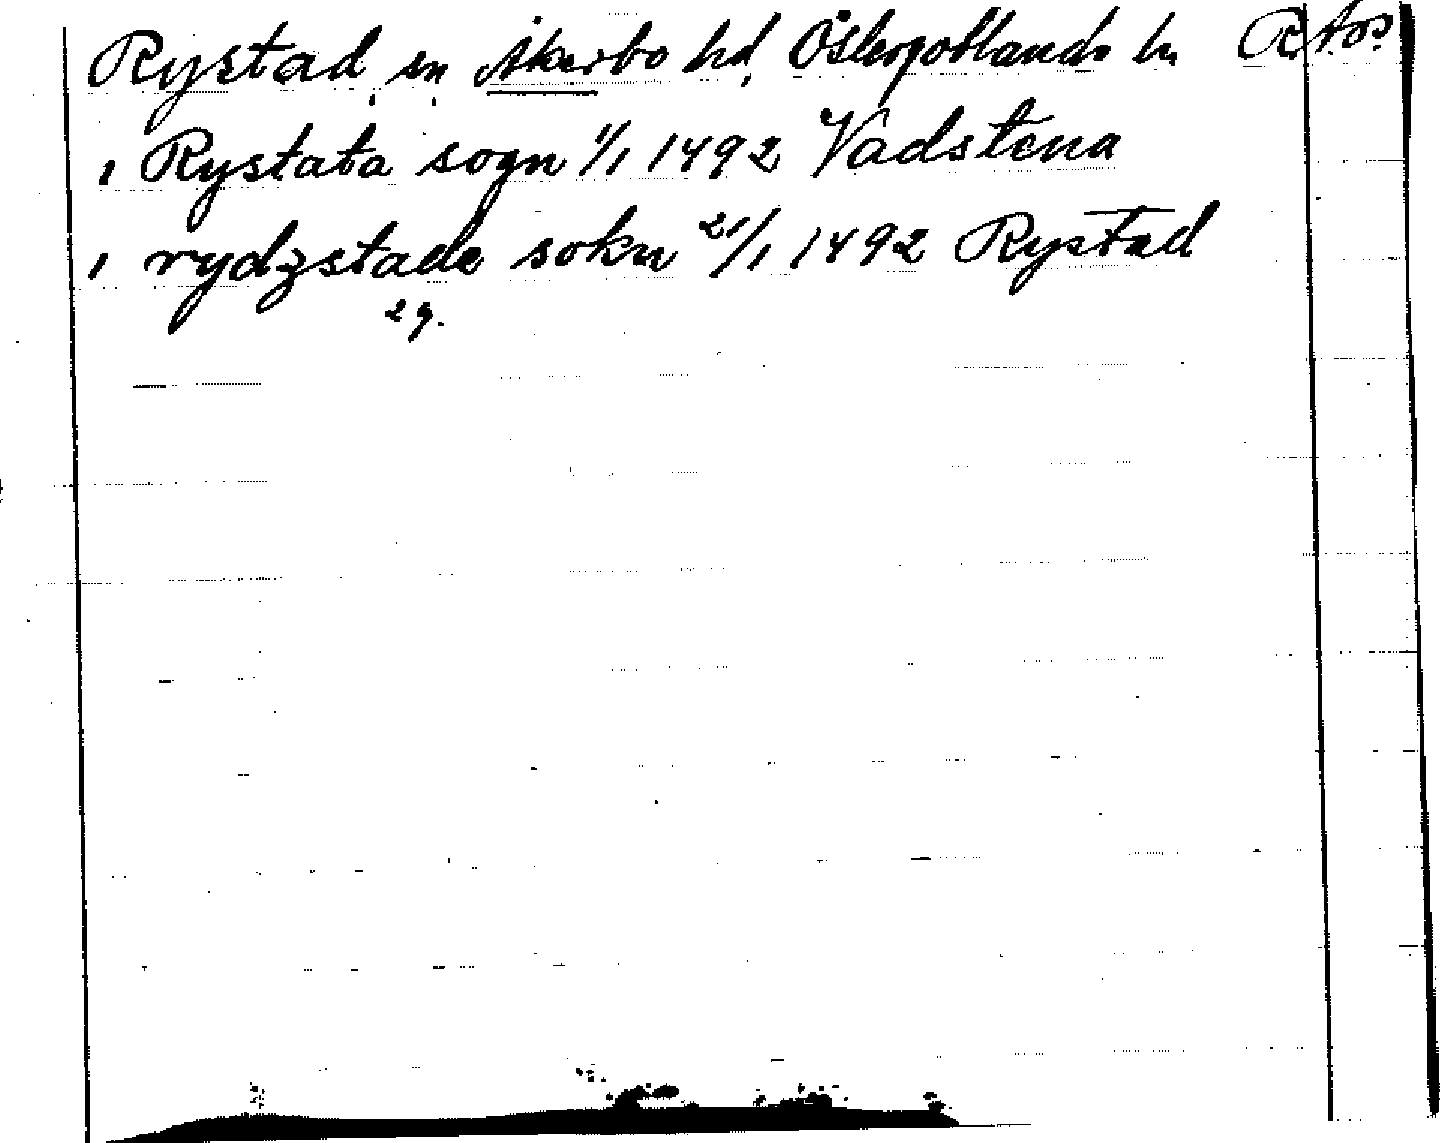 Rystad, sn, Åkerbo hd, Östergötlands ln
ı Rystata sogn 1/1 1492 Vadstena
ı rydzstade sokn 21/1 1492 Rystad
2 g.